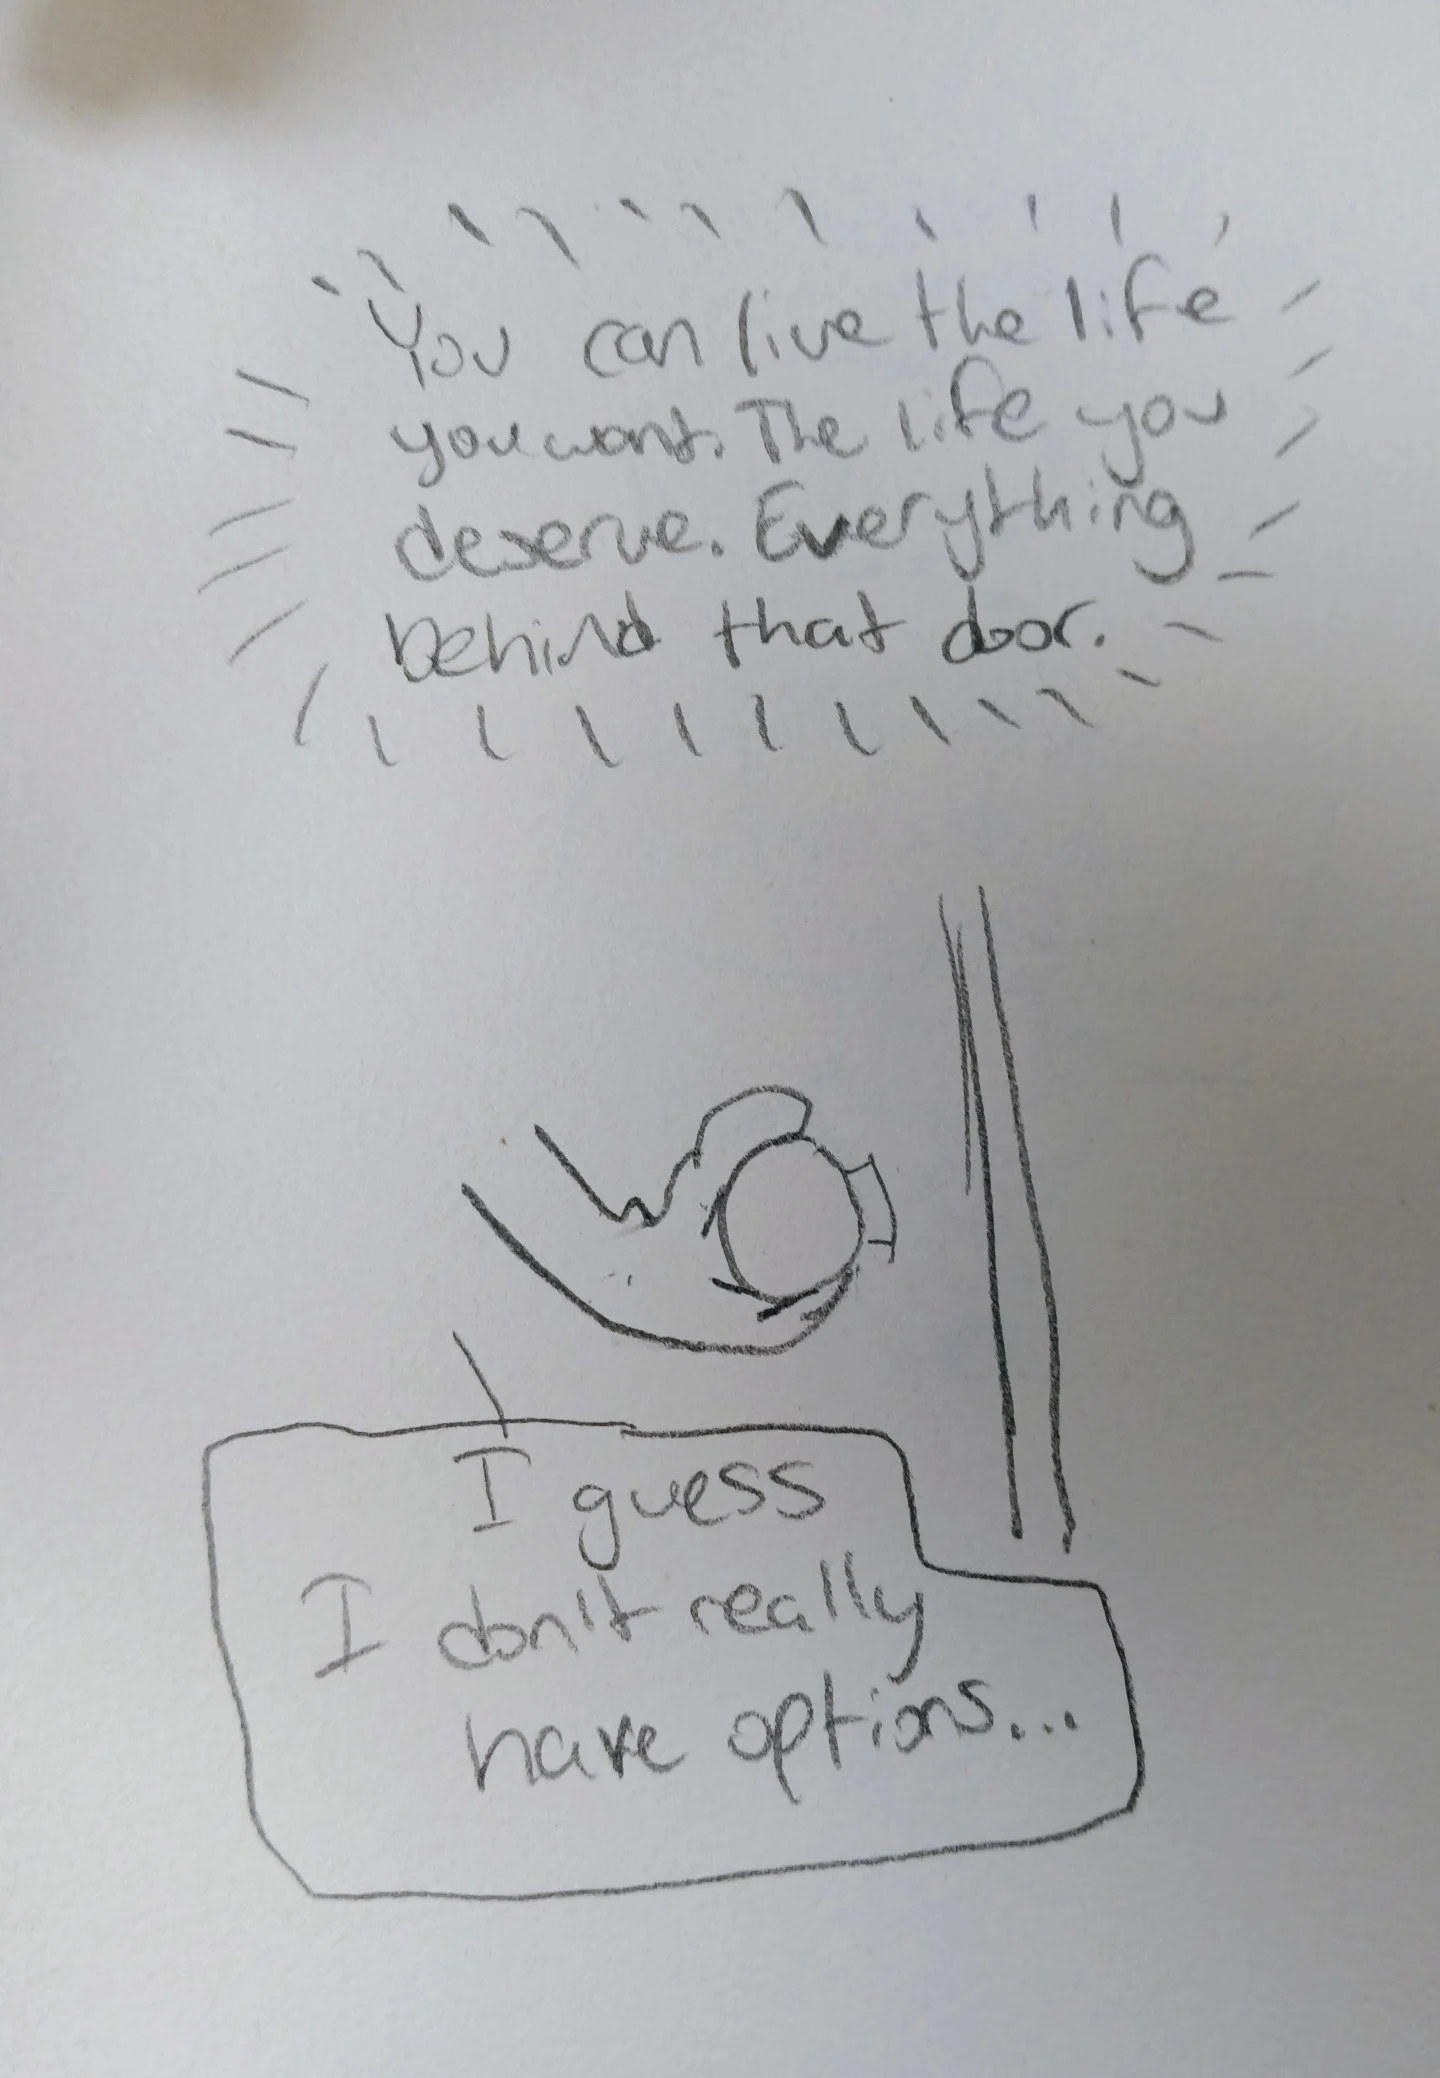 You can live the life
you want. The life you
deserve. Everything
behind that door.
I guess
I don't really
have options...